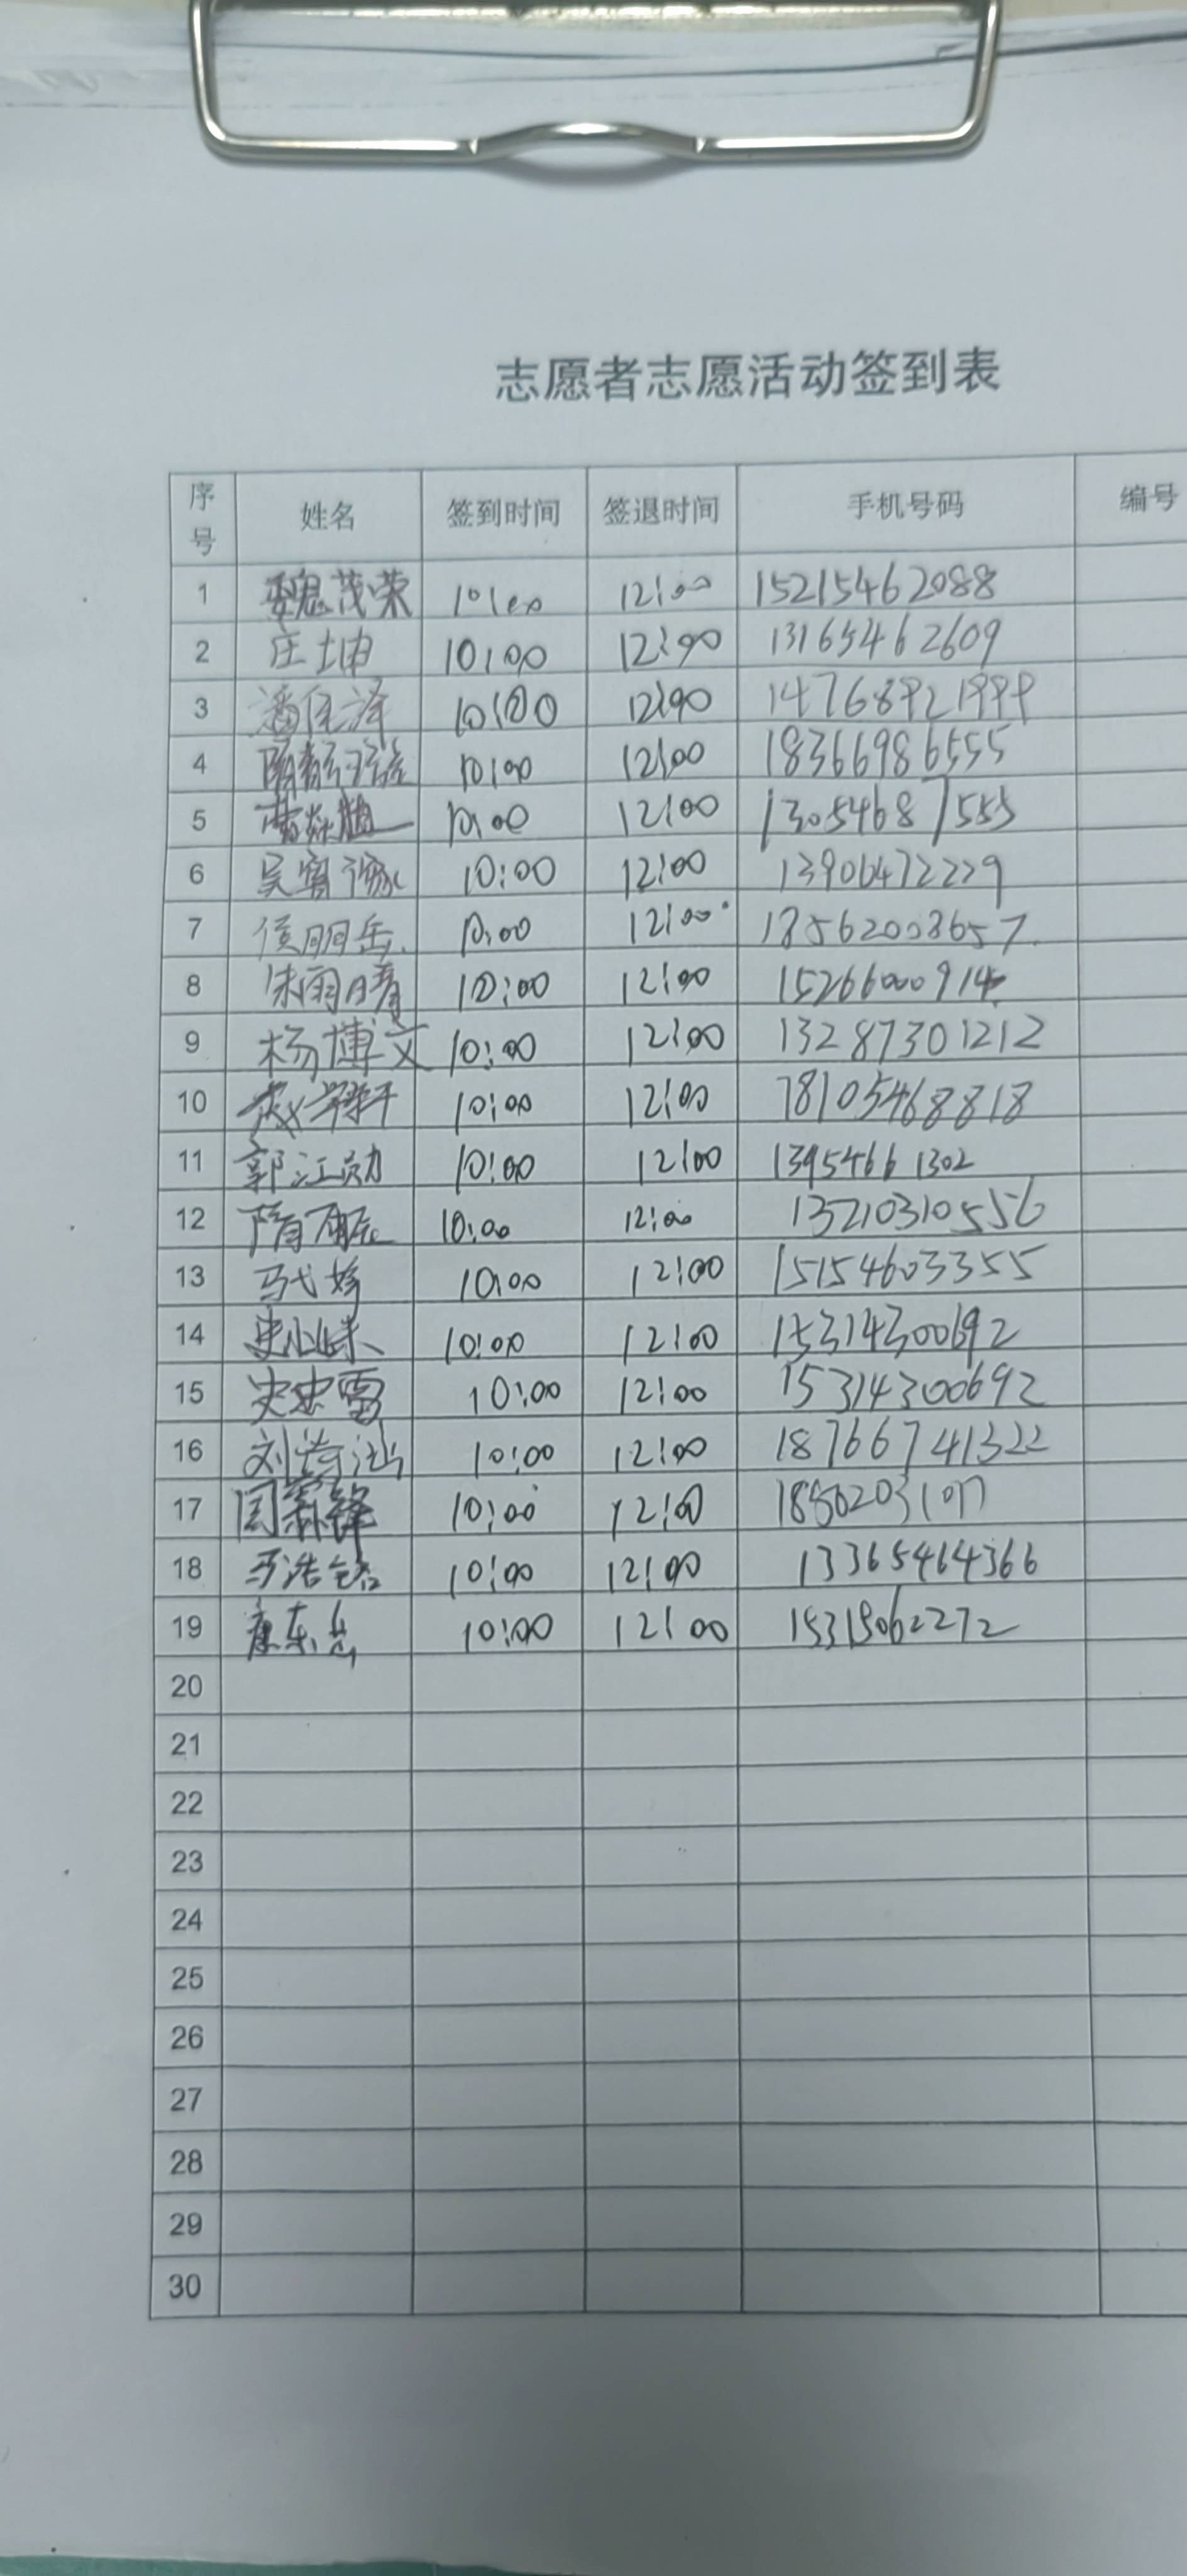 志愿者志愿活动签到表
序号 姓名 签到时间 签退时间 手机号码 编号
1 魏茂荣 10:00 12:00 15215462088
2 庄坤 10:00 12:00 13165462609
3 潘任泽 10:00 12:00 14768921999
4 10:00 12:00 18366986555
5 10:00 12:00 13054687555
6 吴 10:00 12:00 13906472229
7 侯明岳 10:00 12:00 18562008657
8 朱雨晴 10:00 12:00 15266000914
9 杨博文 10:00 12:00 13287301212
10 10:00 12:00 78105468818
11 郭江 10:00 12:00 13954661302
12 隋 10:00 12:00 13210310556
13 马 10:00 12:00 15154603355
14 史 10:00 12:00 15314300692
15 史忠雷 10:00 12:00 15314300692
16 刘 10:00 12:00 18766741322
17 周霖锋 10:00 12:00
18 10:00 12:00 13365464366
19 康东岳 10:00 12:00 15315062272
20
21
22
23
24
25
26
27
28
29
30